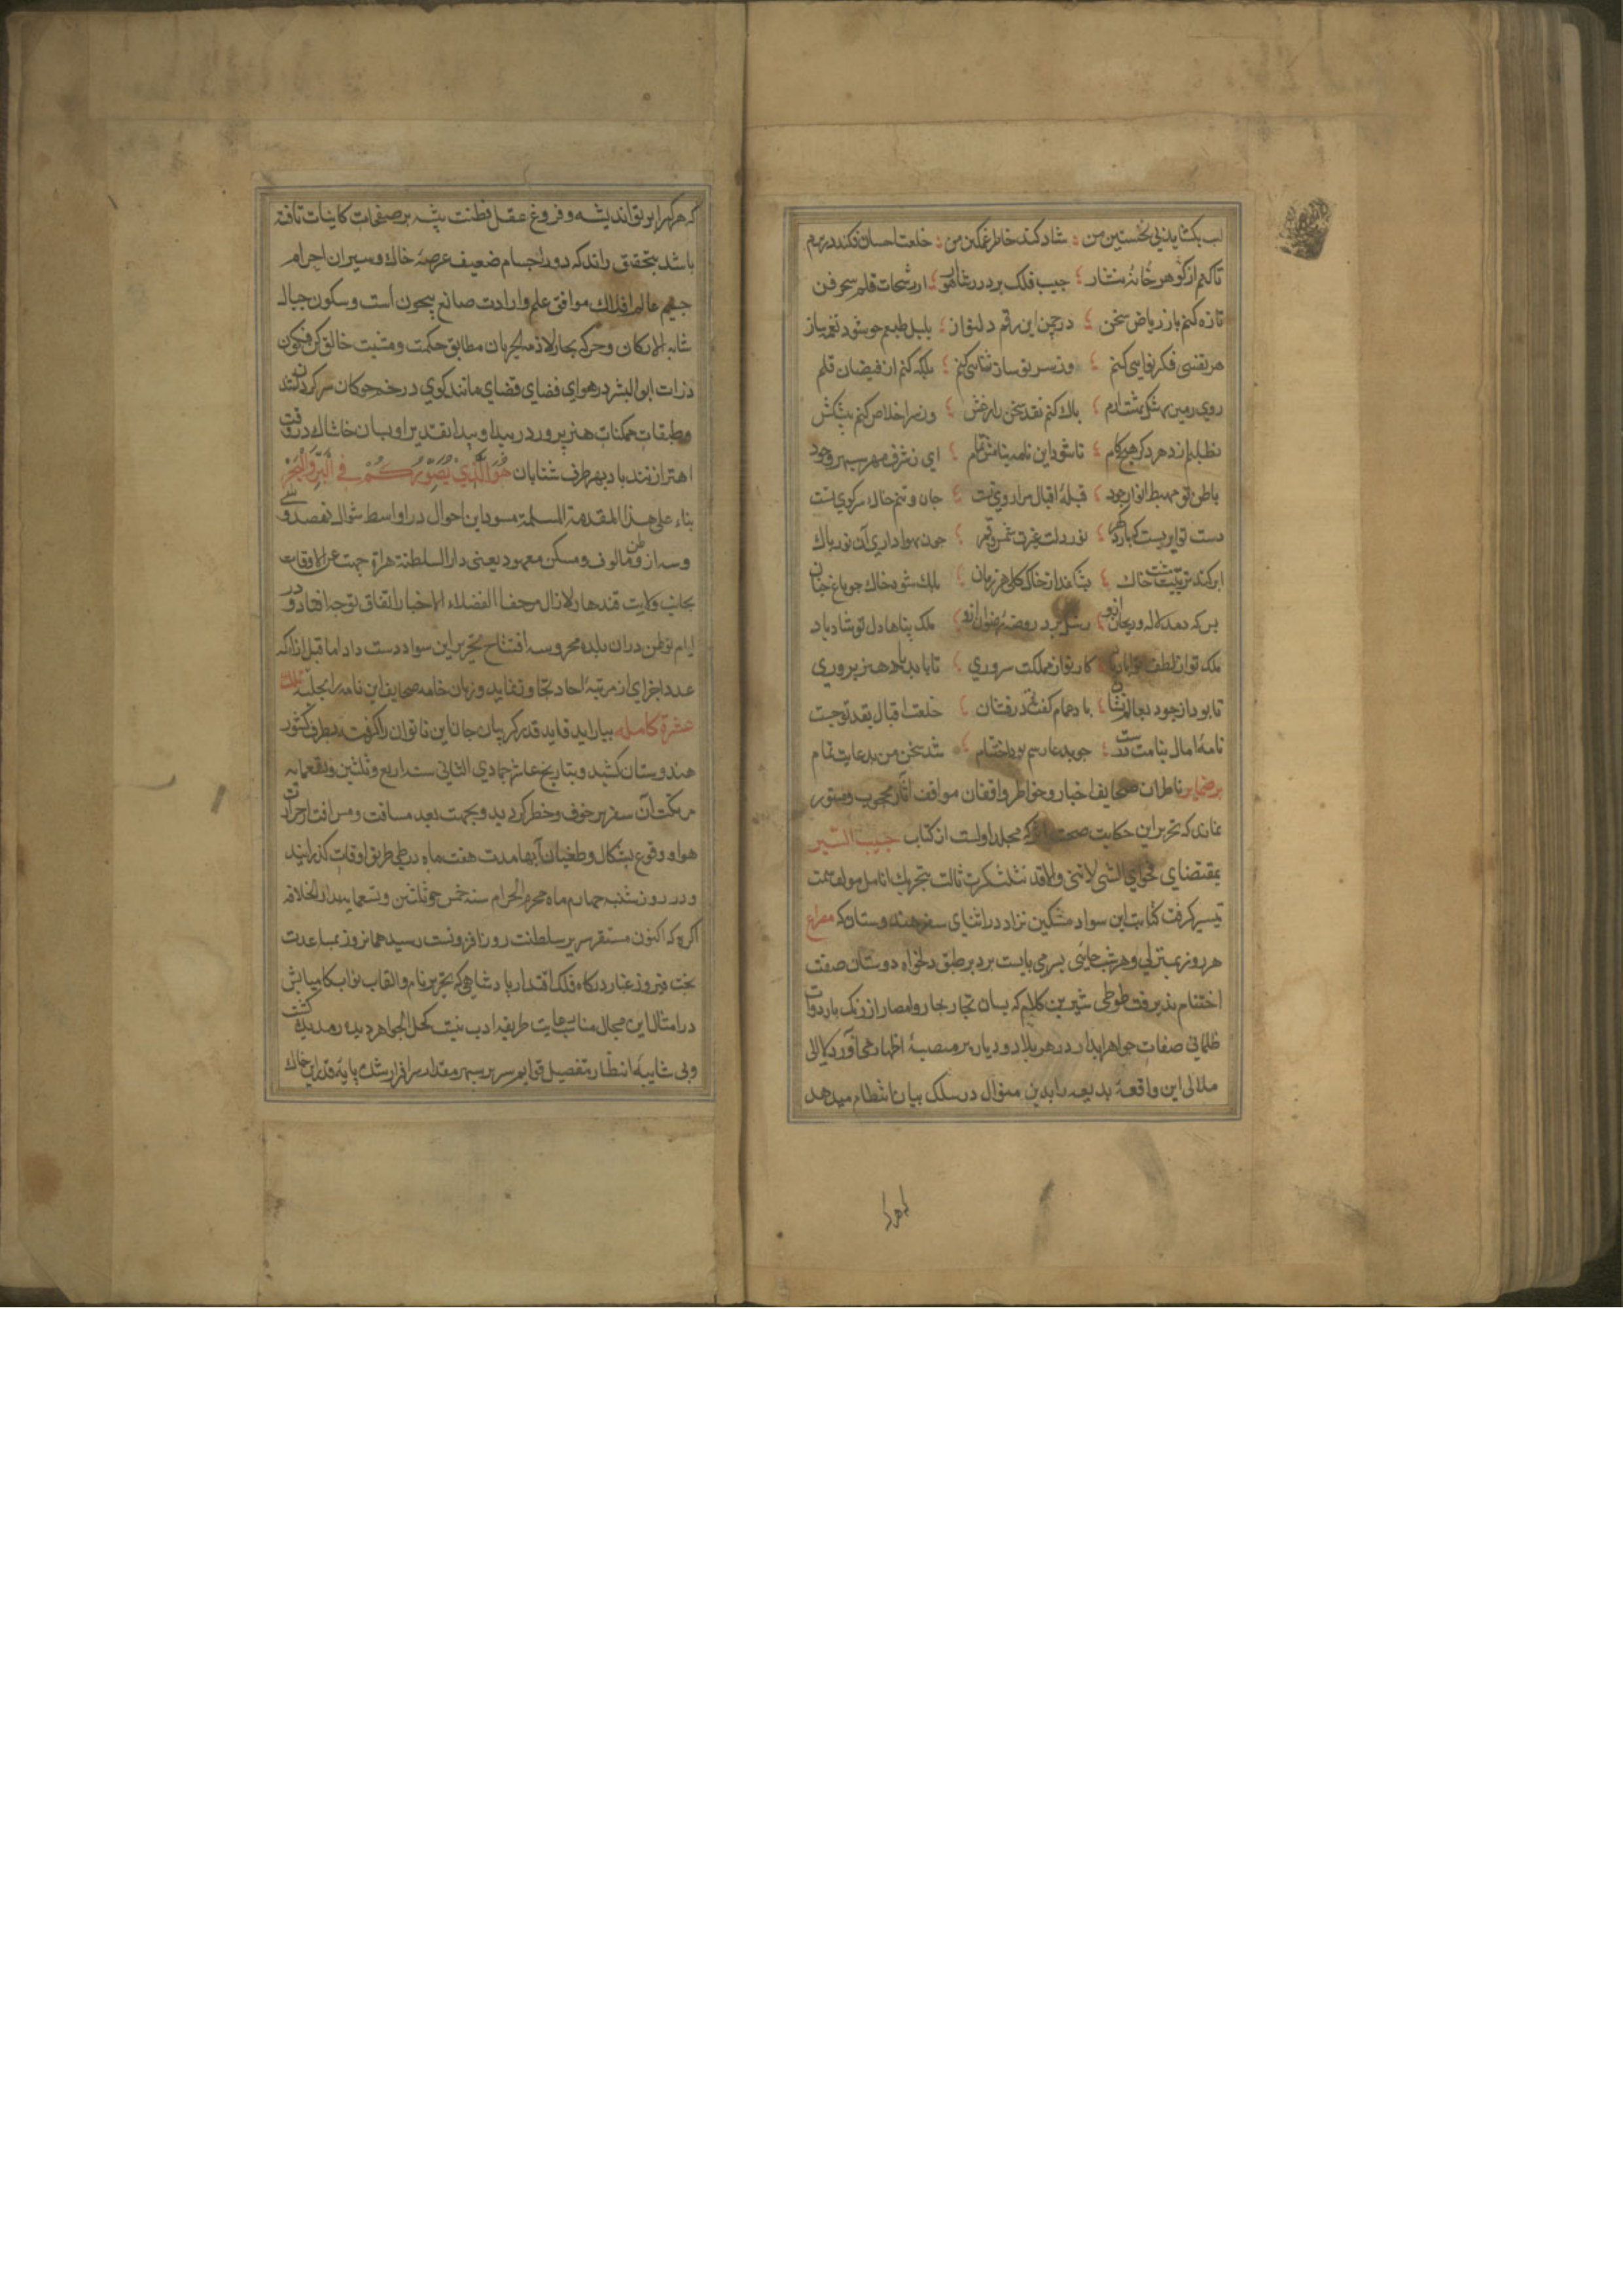 لب بکشاید پی تحسین من شاد کند خاطر غمکین من خلعت احسان فکند در برم
تا کنم از کوهر خانه نثار جیب فلک پر در شاهوار از رشحات قلم سحر فن
تازه کنم باز ریاض سخن در چمن این رقم دلنواز بلبل طبعم جو شود نغمه ساز
هر نفسی فکر کنم ملک کنم از فیضان قلم
روی زمین پاک کنم نقد سخن را ز غش وز سر اخلاص کنم پیشکش
نطلبم از دهر دکر هیچ کام تا شود این نامه بنامش تمام ای ز شرف مهر سپهر وجود
باطن تو مهبط انوار جود قبلهٔ اقبال مرا روی تست جان و تنم خاک سر کوی تست
دست تو ابریست نور دلت غیرت شمس و قمر چون بهواداری آن نور پاک
ابر کند تربیت مشت خاک بشکفد از خاک کل هر زمان ملک شود خاک چو باغ جنان
بس که دمد لاله و ریحان ازو رشک برد روضهٔ رضوان ازو ملک پناها دل تو شاد باد
ملک تو از لطف تو آباد باد کار تو از مملکت سروری تا باید باد هنر پروری
تا بود از جود بعالم نشان باد عام کفت درفشان خلعت اقبال بقد تو جست
نامهٔ امال بنامت درست چو بدعا رسم بود اختتام شد سخن من بدعایت تمام
بر ضمایر ناظران صحایف اخبار و خواطر واقفان مواقف آثار محجوب و مستور
نماند که تحریر این حکایت صحت اثر که مجلد اولست از کتاب حبیب السیر
بمقتضای فحوای الشی لا یثنی و الا قد یثلث کرت ثالث بتحریک انامل مولف سمت
تیسیر کرفت کتابت این سواد مشکین نژاد در اثنای سفر هندوستان که مصراع
هر روز بمنزلی و هر شب جائی بسر می بایست برد بر طبق دلخواه دوستان صفت
اختتام پذیرفت طوطی شیرین کلام که بسان تجار بحار و امصار از زنک بار دوات
ظلمانی صفات جواهر ابدار در هر بلاد و دیار بر منصهٔ اظهار می آورد کلالی
متلالی این واقعهٔ بدیعه را بدین منوال در سلک بیان انتظام میدهد
که هر کرا پرتو اندیشه و فروغ عقل فطنت پیشه بر صفحات کاینات تافته
باشد بتحقیق داند که دور اجسام ضعیف عرصهٔ خاک و سیران اجرام
جسیم عالم افلاک موافق علم و ارادت صانع بیچون است و سکون جبال
شامخ الارکان و حرکه بحار لازمه الجریان مطابق حکمت و مشیت خالق کن فیکون
ذرات ابو البشر در هوای فضای قضای مانند کوی در خم جوکان سرکردانند
و طبقات ممکنات هنر پرور در بیداء و بیدا تقدیر او بسان خاشاک در وقت
اهتزاز تند باد بهر طرف شتابان هو الذی یسیرکم فی البر و البحر
بناء علی هذا المقدمة المسلمة مسود این احوال در اواسط شوال نهصد و سی
و سه از وطن مالوف و مسکن معهود یعنی دار السلطنة هراة جهت عن الاوقات
بجانب ولایت قندهار لا زال مرجعا الفضلاء الاخیار اتفاق توجه افتاد و در
ایام توطن دران بلده محروسه افتتاح تحریر این سواد دست داد اما قبل ازانکه
عدد اجزای از مرتبهٔ احاد تجاوز نماید و زبان خامه صحایف این نامه را بحلیهٔ تلک
عشرة کامله بیاراید قاید قدر کریبان جان این ناتوان را کرفته بطرف کشور
هندوستان کشید و بتاریخ عاشر جمادی الثانی سنه اربع و ثلثین و تسعمایه
مرتکب آن سفر پر خوف و خطر کردید و بجهت بعد مسافت و مسرافت حرارت
هوا و وقوع بشکال و طغیان آبها مدت هفت ماه در طی طریق اوقات کذرانید
و در روز شنبه چهارم ماه محرم الحرام سنه خمس و ثلثین و تسعمایه بدار الخلافه
اکره که اکنون مستقر سریر سلطنت روز افزونست رسید همانروز بمساعدت
بخت فیروز غبار درکاه فلک اقتدار پادشاهی که تحریر نام و القاب نواب کامیابش
در امثال این مجال مناسب رعایت طریقه ادب نیست کحل الجواهر دیده رمدیده کشت
و بی شایبه انتظار بتفصیل قوایم سریر سپهر مقدار سرافراز شده پایهٔ قدر این خاک